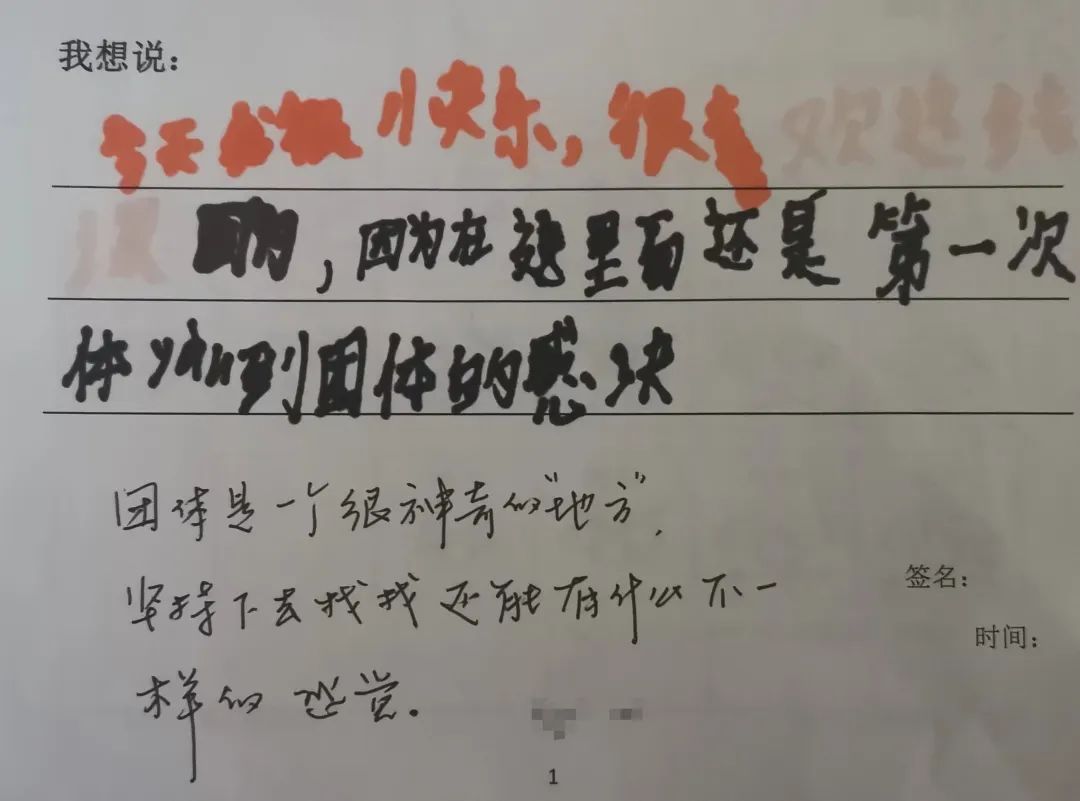 我想说：
今天我很快乐，很喜欢这
，因为在这里面还是第一次
体验到团体的感决
团体是一个很神奇的“地方”，
坚持下去找找还能有什么不一
签名：
时间：
样的感觉。
1